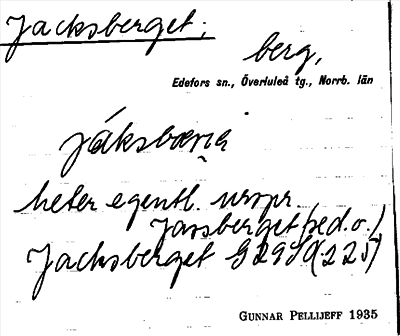 Jacksberget;
berg,
Edefors sn., Överluleå tg., Norrb. län
jáksbæria
heter egentl. urspr.
Jassberget (se d. o.)
Jacksberget G 2980 (225)
GUNNAR PELLIJEFF 1935